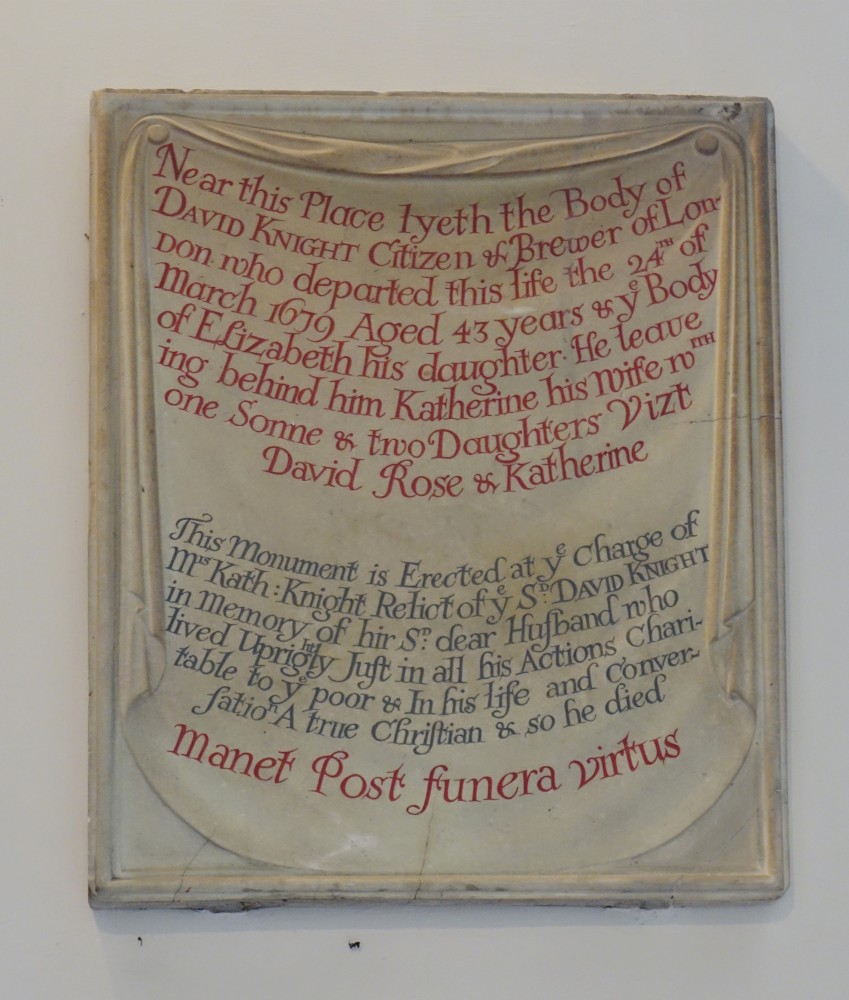 Near this Place lyeth the Body of
DAVID KNIGHT Citizen & Brewer of Lon-
don who departed this life the 24TH of
March 1679 Aged 43 years & ye Body
of Elizabeth his daughter. He leave
ing behind him Katherine his Wife wTH
one Sonne & two Daughters Vizt
David Rose & Katherine
This Monument is Erected at ye Charge of
Mrs Kath: Knight Relict of ye SD: DAVID KNIGHT
in memory of hir SD: dear Huſband who
lived Uprightly Juſt in all his Actions Chari-
table to ye poor & In his life and Conver-
ſation A true Chriſtian & so he died
Manet Post funera virtus